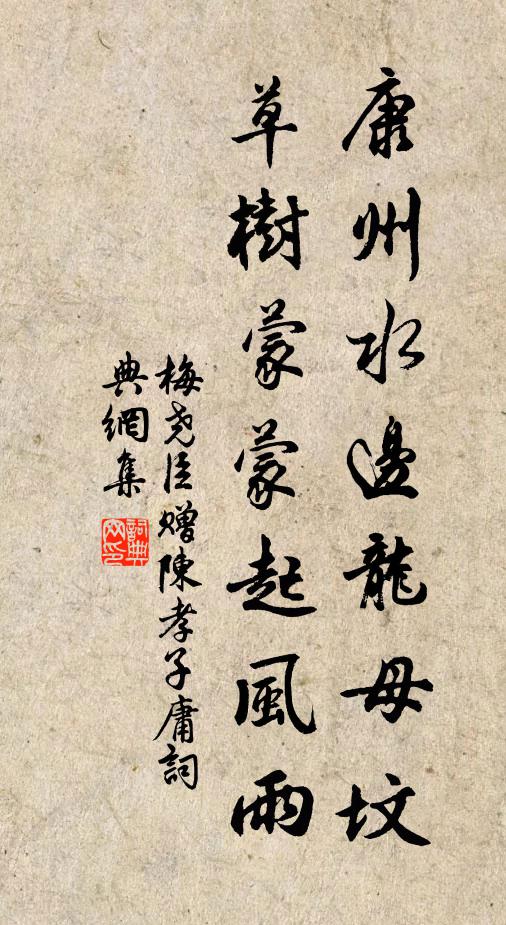 康州水邊龍母坟
草樹蒙蒙起風雨
梅尧臣赠陳孝子庸詞
典網集
詞典
网印